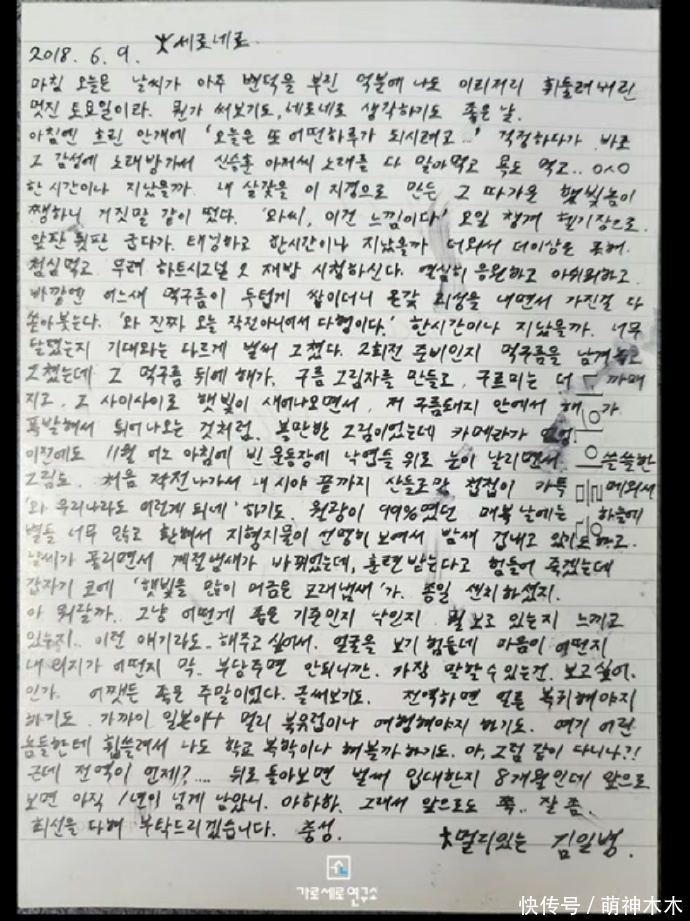 2018. 6. 9. 大세로네로.
마침 오늘은 날씨가 아주 변덕을 부린 덕분에 나도 이리저리 휘둘려버린
멋진 토요일이라. 뭔가 써보기도, 네로네로 생각하기도 좋은 날.
아침엔 흐린 안개에 '오늘은 또 어떤하루가 되시려고...' 걱정하다가 바로
그 감성에 노래방가서 신승훈 아저씨 노래를 다 말아먹고 욕도 먹고.. 0^0
한시간이나 지났을까. 내 살갗을 이 지경으로 만든 그 따가운 햇빛놈이
쨍하니 거짓말 같이 떴다. '와씨, 이건 느낌이다' 오일 챙겨 헬기장으로.
앞판 뒷판 굽다가. 태닝하고 한시간이나 지났을까 더워서 더이상은 못해.
점심먹고 무려 하트시그널 2 재방 시청하신다. 열심히 응원하고 아쉬워하고.
바깥엔 어느새 먹구름이 두텁게 쌓이더니 온갖 괴성을 내면서 가진걸 다
쏟아붓는다. '와 진짜 오늘 작전아니어서 다행이다.' 한시간이나 지났을까. 너무
달렸는지 기대와는 다르게 벌써 그쳤다. 2회전 준비인지 먹구름을 남겨놓고
그쳤는데 그 먹구름 뒤에 해가, 구름 그림자를 만들고, 구르미는 더 까매
지고. 그 사이사이로 햇빛이 새어나오면서, 저 구름돼지 안에서 해가
폭발해서 튀어나오는 것처럼. 볼만한 그림이었는데 카메라가
이전에도 11월 어느 아침에 빈 운동장에 낙엽들 위로 눈이 날리면서 쓸쓸한
그림도. 처음 작전나가서 내 시야 끝까지 산들로만 첩첩이 가득 메워져
'와 우리나라도 이렇게 되네' 하기도. 월광이 99%였던 매복 날에는 하늘에
별들 너무 많고 환해서 지형지물이 선명히 보여서 밤새 겁내고 있기도하고.
날씨가 풀리면서 계절냄새가 바뀌었는데, 훈련받는다고 힘들어 죽겠는데
갑자기 코에 '햇빛을 많이 머금은 모래냄새'가. 종일 센치하셨지.
아 뭐랄까.. 그냥 어떻게 좋은 기준인지 낙인지 뭘 보고 있는지 느끼고
있는지.. 이런 얘기라도.. 해주고 싶어서. 얼굴을 보기 힘든데 마음이 어떤지
내 의지가 어떤지 막.. 부담주면 안되니깐. 가장 말할수있는건. 보고싶어.
인가. 어쨋든 좋은 주말이었다. 글써보기도. 전역하면 얼른 복귀해야지
하기도. 가까이 일본이나 멀리 북유럽이나 여행해야지 하기도. 여기 어린
놈들한테 휩쓸려서 나도 학교 복학이나 해볼까하기도. 아, 그럼 같이 다니나?!
근데 전역이 언제?.... 뒤로 돌아보면 벌써 입대한지 8개월인데 앞으로
보면 아직 1년이 넘게 남았니. 아하하. 그래서 앞으로도 쭉.. 잘 좀..
최선을 다해 부탁드리겠습니다. 충성. 大멀리있는 김일병.
가로세로연구소
快传号 / 萌神木木